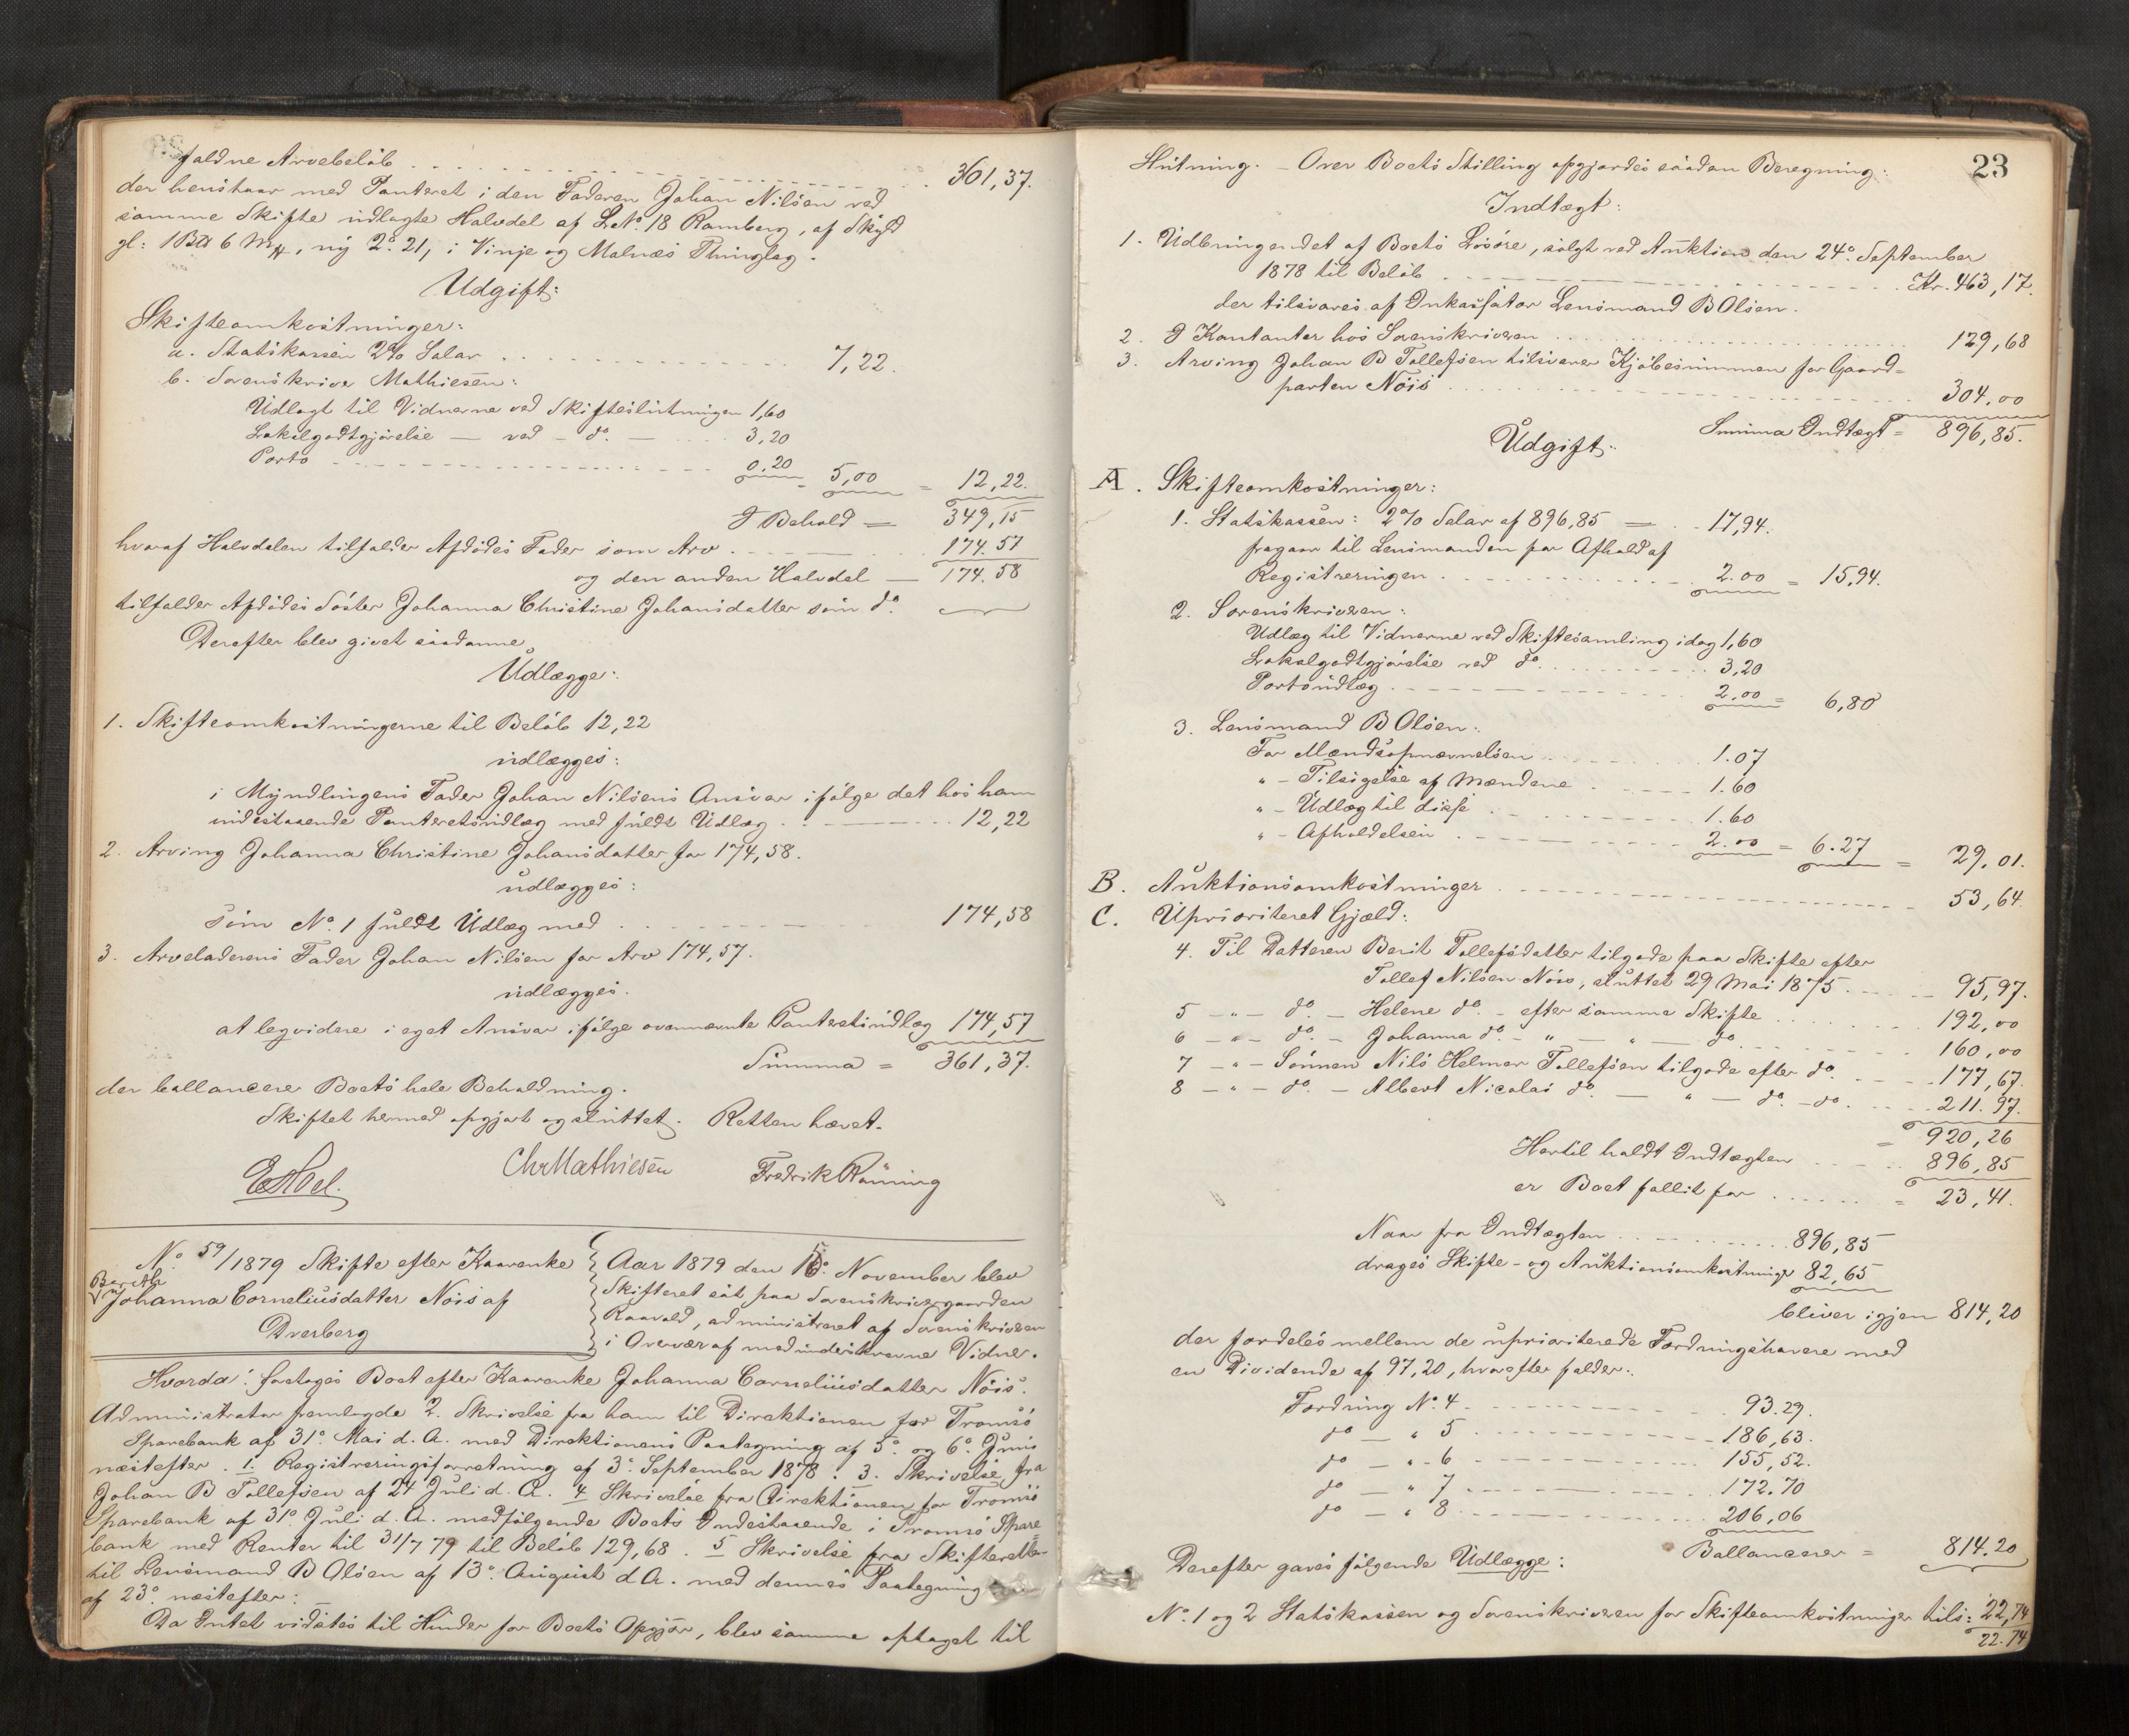 faldne Arvebeløb . . . 361,37.
der henstaar med Panteret i den Faderen Johan Nilsen ved
samme Skifte udlagte Halvdel af L.No. 18 Ramberg, af Skyld
gl: 1 Bpd 6 Mk, ny 2. 21, i Vinje og Malnæs Thinglag.
Udgift:
Skifteomkostninger:
a. Statskassen 2% Salar . . . 7,22.
b. Sorenskriver Mathiesen:
Udlagt til Vidnerne ved Skifteslutningen 1,60
Lokalgodtgjørelse — ved - do. — . . . 3,20
Porto . . . 0.20 = 5,00 = 12,22.
I Behold = 349,15
hvoraf Halvdelen tilfalder Afdødes Fader som Arv . . . 174.57
og den anden Halvdel — 174.58
tilfalder Afdødes Søster Johanna Christine Johansdatter som do.
Derefter blev givet saadanne
Udlægge:
1. Skifteomkostningerne til Beløb 12,22
udlægges:
i Myndlingens Fader Johan Nilsens Ansvar ifølge det hos ham
indestaaende Panteretsudlæg med fuldt Udlæg . . . 12,22
2. Arving Johanna Christine Johansdatter for 174,58.
udlægges:
som No. 1 fuldt Udlæg med . . . 174,58
3. Arveladerens Fader Johan Nilsen for Arv 174,57.
udlægges.
at legvidere i eget Ansvar ifølge ovennævnte Panteretsudlæg 174,57
Summa = 361,37.
der ballancerer Boets hele Beholdning.
Skiftet hermed opgjort og sluttet. Retten hævet.
Chr Mathiesen Fredrik Rønning
No. 59/1879 Skifte efter Kaarenke
Beretha
Johanna Corneliusdatter Nois af
Dverberg
Aar 1879 den 15. November blev
Skifteret sat paa Sorenskrivergaarden
Raavold, administreret af Sorenskriveren
i Overvær af medunderskrevne Vidner.
Hvorda: foretoges Boet efter Kaarenke Johanna Corneliusdatter Nois.
Administrator fremlagde 2. Skrivelse fra ham til Direktionen for Tromsø
Sparebank af 31. Mai d. A. med Direktionens Paategning af 5. og 6. Juni
næstefter. 1. Registreringsforretning af 3. September 1878. 3. Skrivelse fra
Johan B Tollefsen af 24 Juli d. A. 4 Skrivelse fra Direktionen for Tromsø
Sparebank af 31. Juli d. A. medfølgende Boets Indestaaende i Tromsø Spare=
bank med Renter til 31/7 79 til Beløb 129,68. 5 Skrivelse fra Skifteretten
til Lensmand B Olsen af 13. August d A. med dennes Paategning
af 23. næstefter:
Da Intet vidstes til Hinder for Boets Opgjør, blev samme optaget til
23
Slutning. - Over Boets Stilling opgjordes saadan Beregning:
Indtægt:
1. Udbringendet af Boets Løsøre, solgt ved Auktion den 24. September
1878 til Beløb . . . Kr. 463,17.
der tilsvares af Inkassator Lensmand B Olsen.
2. I Kontanter hos Sorenskriveren . . . 129,68
3. Arving Johan B Tollefsen tilsvarer Kjøbesummen for Gaard=
parten Nois . . . 304.00
Summa Indtægt = 896,85.
Udgift.
A. Skifteomkostninger:
1. Statskassen: 2% Salar af 896,85 — . . 17,94.
fragaar til Lensmanden for Afhold af
Registreringen . . . 2.00 = 15,94.
2. Sorenskriveren:
Udlæg til Vidnerne ved Skiftesamling idag 1,60
Lokalgodtgjørelse ved do. . . . 3,20
Portoudlæg . . . 2.00 = 6,80
3. Lensmand B Olsen:
For Mændsopnævnelsen . . . 1.07
" - Tilsigelse af Mændene . . . 1.60
" - Udlæg til disse . . . 1.60
" - Afholdelsen . . . 2.00 = 6.27 = 29,01.
B. Auktionsomkostninger . . . 53,64.
C. Uprioriteret Gjæld:
4. Til Datteren Berit Tollefsdatter tilgode paa Skifte efter
Tollef Nilsen Nois, sluttet 29 Mai 1875 . . . 95,97.
5 - " - do. - Helene do. - efter samme Skifte . . . 192,00
6 - " - do. - Johanna do. - " - " - do . . . 160,00
7 - " - Sønnen Nils Helmer Tollefsen tilgode efter do. . . . 177,67.
8 - " - do. - Albert Nicolai do. — " — do. - do. . . . 211.97.
= 920,26
Hertil holdt Indtægten . . . 896,85
er Boet fallit for . . . = 23,41.
Naar fra Indtægten . . . 896,85
drages Skifte- og Auktionsomkostninger 82,65
bliver igjen 814,20
der fordeles mellem de uprioriterede Fordringshavere med
en Dividende af 97,20, hvorefter falder:
Fordring No. 4 . . . 93.29.
do — " 5 . . . 186,63.
do — " - 6 . . . 155,52.
do — " 7 . . . 172.70
do — " 8 . . . 206,06
Ballancerer = 814.20
Derefter gaves følgende Udlægge:
No. 1 og 2 Statskassen og Sorenskriveren for Skifteomkostninger tils: 22,74
22.74